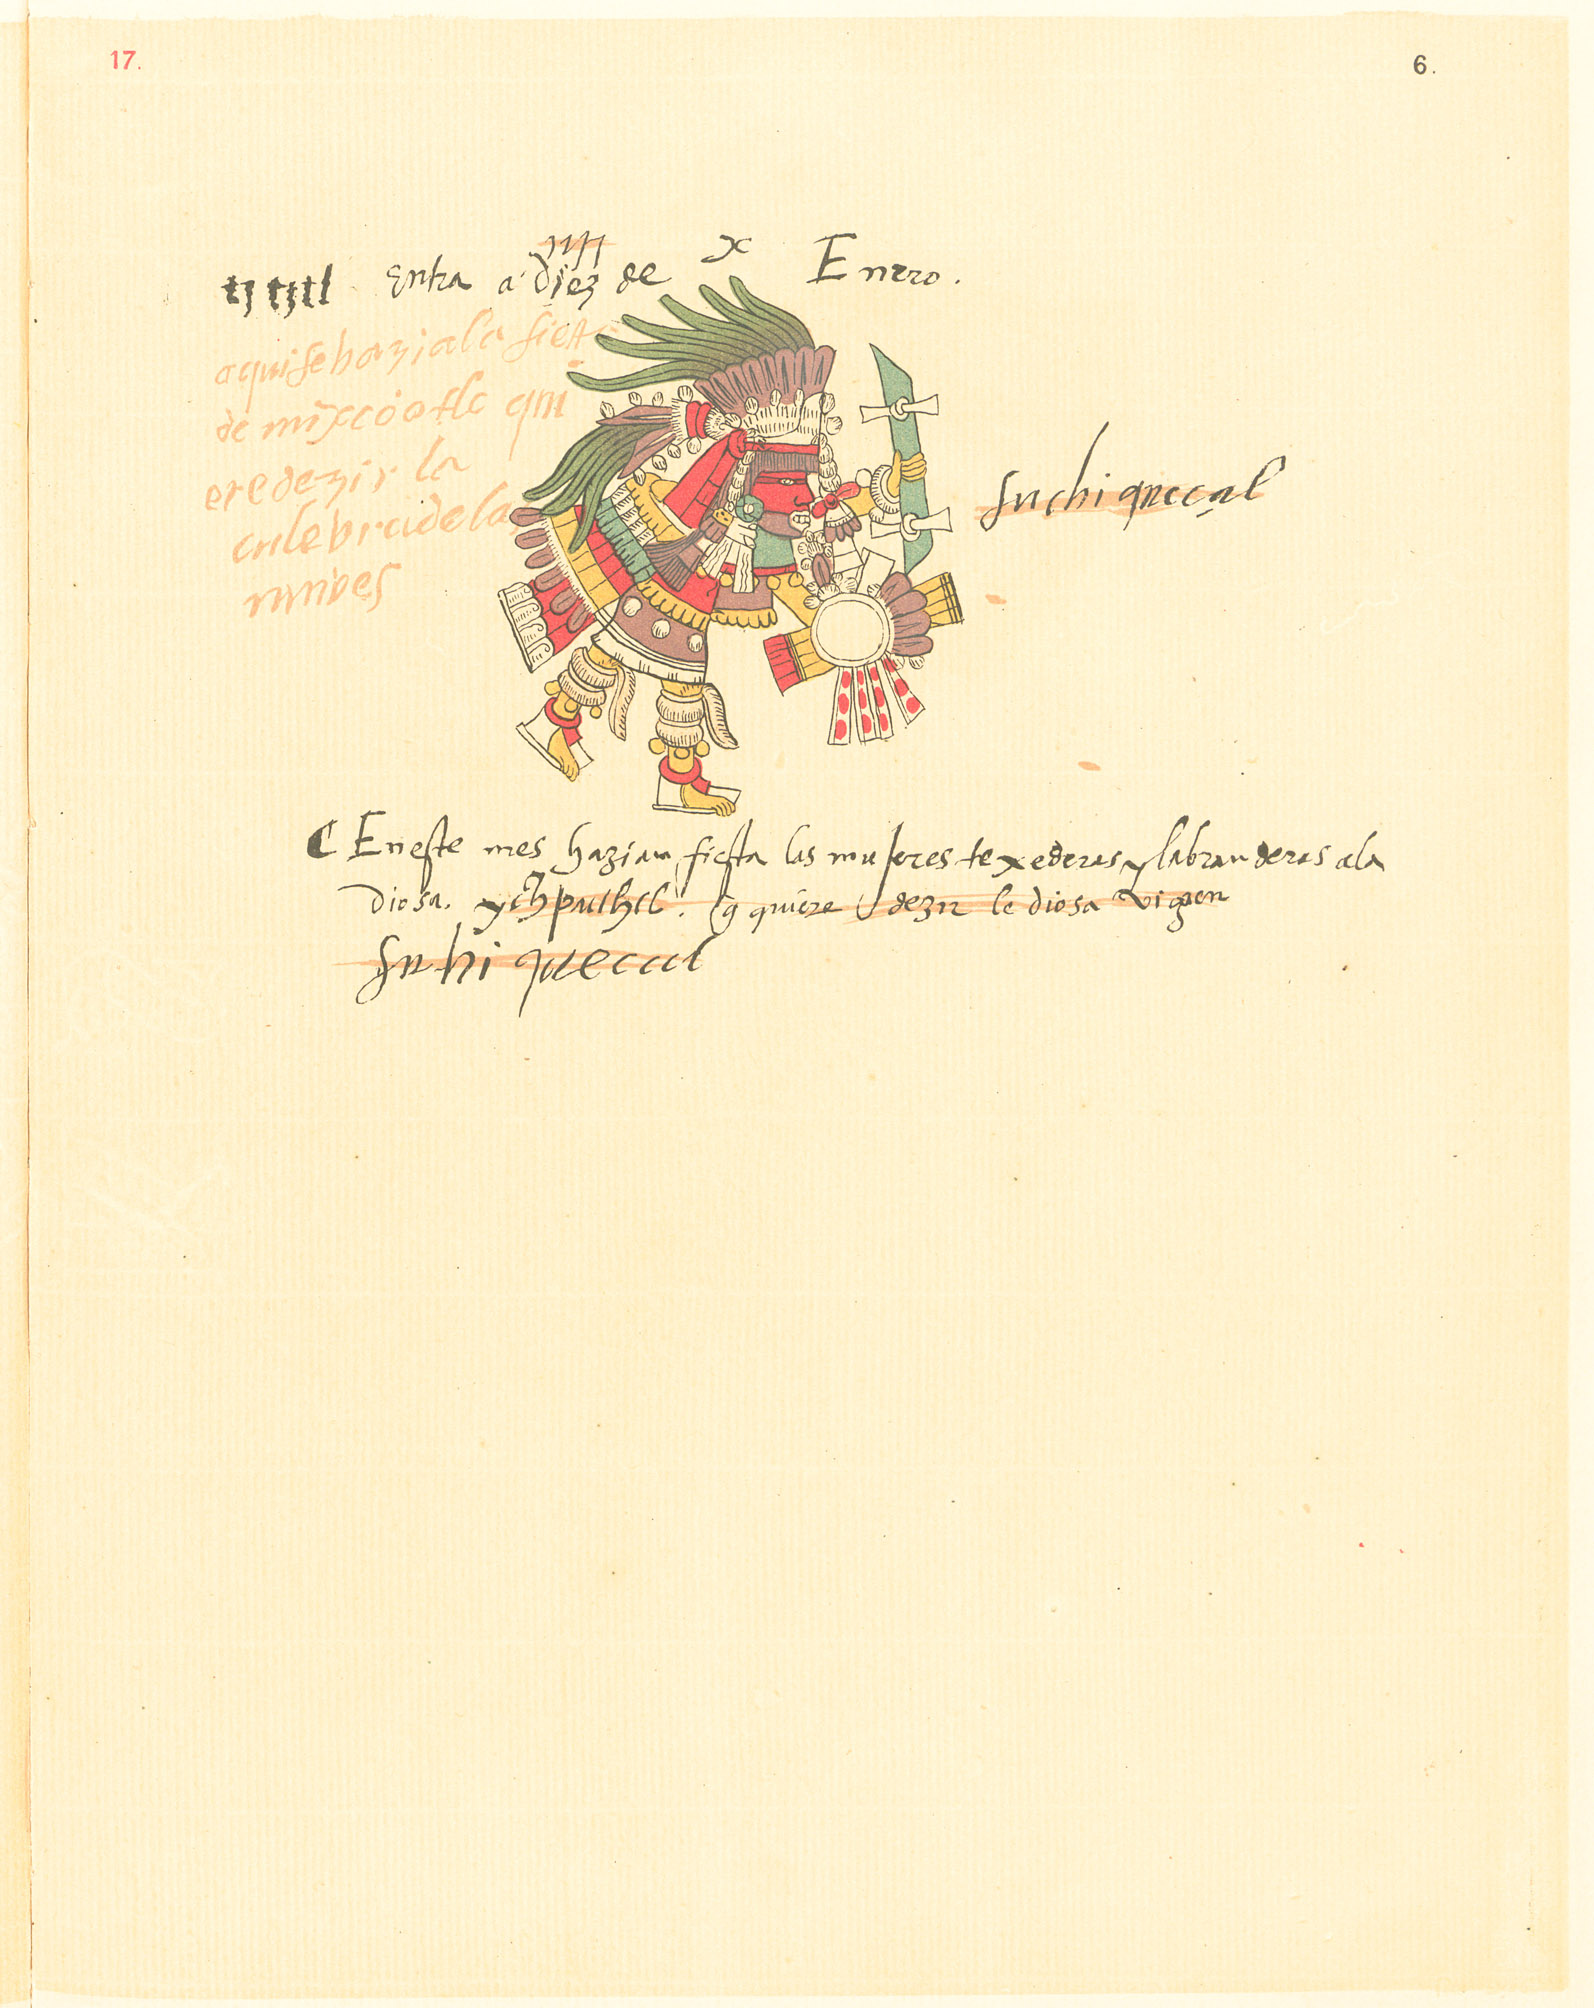 17.
6.
entra a diez de x Enero.
aqui se hazia la fiesta
de mixcoatle qui
ere dezir la
culebra de las
nuves
suchiqueçal
En este mes hazian fiesta las mujeres texederas y labranderas a la
diosa. q quiere dezir la diosa virgen
suchiqueçal